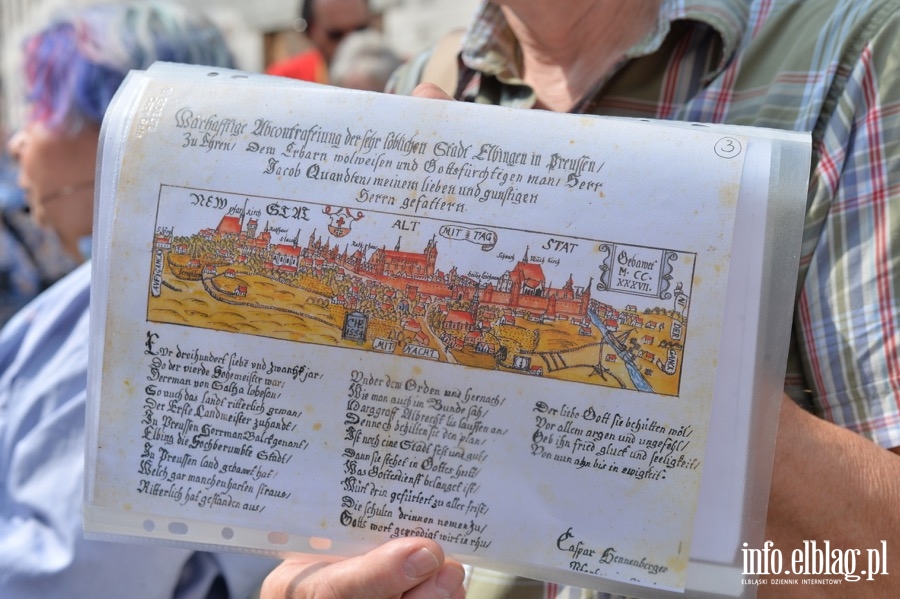 Warhafftige Abcontrafeiung der sehr löblichen Stadt Elbingen in Preussen/
Zu Ehren/ Dem Erbarn wolweisen und Gottsfürchtigen man/ Herr
Jacob Quandten/ meinem lieben und gunstigen
Herrn gefattern.
3
NEW STAT
ALT
MIT TAG
STAT
Gebawet
M. CC.
XXXVII.
MIT NACHT
Vor dreihundert siebē vnd zwantzk jar/
Do der vierde Hogemeister war/
Herrman von Saltza lobesan/
So auch das land ritterlich gewan/
Der Erste Landmeister zuhandt/
In Preussen Herrman Balck genant/
Elbing die hochberumbte Stadt/
In Preussen land gebawt hat/
Welch gar manchen harten straus/
Ritterlich hat gestanden aus/
Vnder dem Orden und hernach/
Wie man auch im Bunde sah/
Marggrof Albrecht lis lauffen an/
Dennoch behilten sie den plan/
Ist noch eine Stadt fest und gut/
Dann sie stehet in Gottes hutt/
Was Gottsdienst belanget ist/
Wirt drin gefürtert zu aller frist/
Die schulen drinnen nemen zu/
Gotts wort gepredigt wirt in rhu/
Der liebe Gott sie behütten wöl/
Vor allem argen und ungefehl/
Geb ihn fried gluck und seeligkeit/
Von nun ahn bis in ewigkeit.
Caspar Hennenberger
info.elblag.pl
ELBLĄSKI DZIENNIK INTERNETOWY